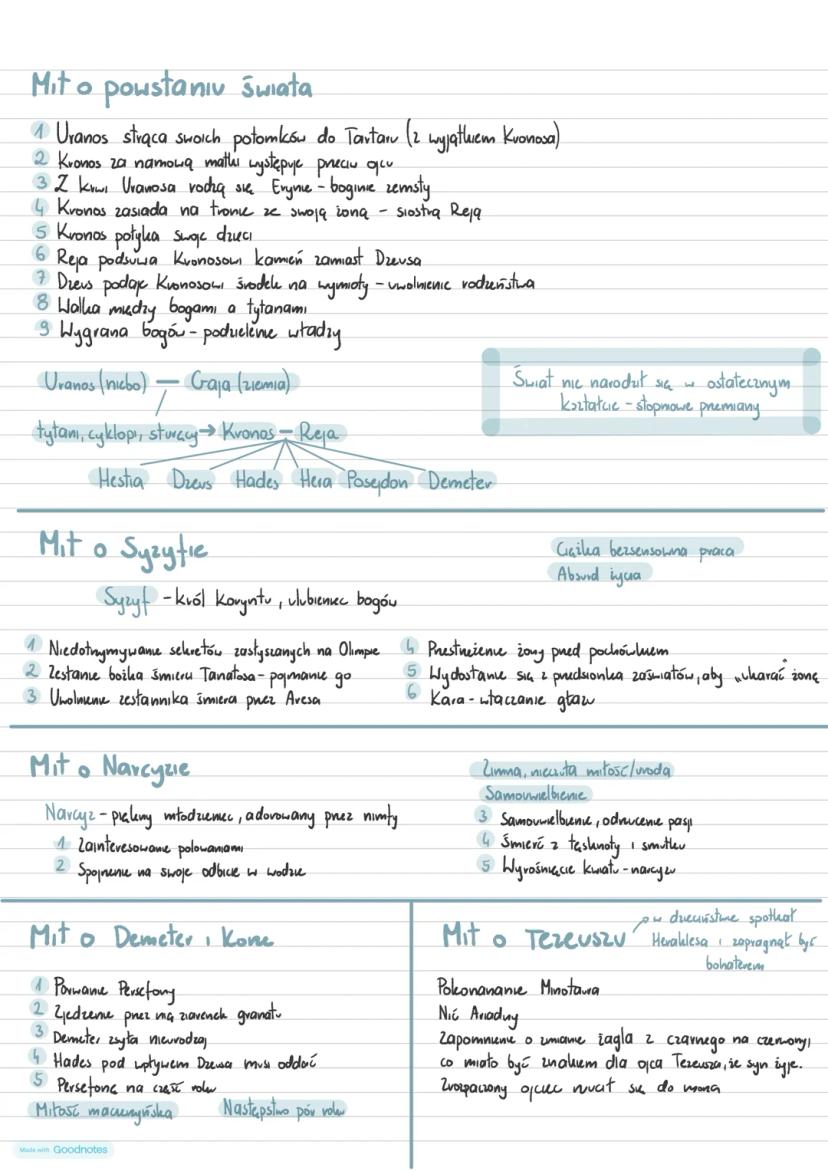 Mit o powstaniu świata
1 Uranos strąca swoich potomków do Tartaru (z wyjątkiem Kronosa)
2 Kronos za namową matki występuje przeciw ojcu
3 Z krwi Uranosa rodzą się Erynie – boginie zemsty
4 Kronos zasiada na tronie ze swoją żoną – siostrą Reją
5 Kronos połyka swoje dzieci
6 Reja podsuwa Kronosowi kamień zamiast Dzeusa
7 Dzeus podaje Kronosowi środek na wymioty – uwolnienie rodzeństwa
8 Walka między bogami a tytanami
9 Wygrana bogów – podzielenie władzy
Świat nie narodził się w ostatecznym
kształcie – stopniowe przemiany
Uranos (niebo) — Gaja (ziemia)
tytani, cyklopi, sturęcy → Kronos – Reja
Hestia Dzeus Hades Hera Posejdon Demeter
Mit o Syzyfie
Ciężka bezsensowna praca
Absurd życia
Syzyf – król Koryntu, ulubieniec bogów
1 Niedotrzymywanie sekretów zasłyszanych na Olimpie
2 Zesłanie bożka śmierci Tanatosa – pojmanie go
3 Uwolnienie zesłannika śmierci przez Aresa
4 Przestrzeżenie żony przed pochówkiem
5 Wydostanie się z przedsionka zaświatów, aby „ukarać" żonę
6 Kara – wtaczanie głazu
Mit o Narcyzie
Zimna, nieczuła miłość/uroda
Samouwielbienie
Narcyz – piękny młodzieniec, adorowany przez nimfy
1 Zainteresowanie polowaniami
2 Spojrzenie na swoje odbicie w wodzie
3 Samouwielbienie, odrzucenie pasji
4 Śmierć z tęsknoty i smutku
5 Wyrośnięcie kwiatu – narcyzu
Mit o Demeter i Korze
1 Porwanie Persefony
2 Zjedzenie przez nią ziarenek granatu
3 Demeter zsyła nieurodzaj
4 Hades pod wpływem Dzeusa musi oddać
5 Persefonę na część roku
Miłość macierzyńska Następstwo pór roku
Mit o Tezeuszu
w dzieciństwie spotkał
Heraklesa i zapragnął być
bohaterem
Pokonananie Minotaura
Nić Ariadny
Zapomnienie o zmianie żagla z czarnego na czerwony,
co miało być znakiem dla ojca Tezeusza, że syn żyje.
Zrozpaczony ojciec rzucił się do morza
Made with Goodnotes